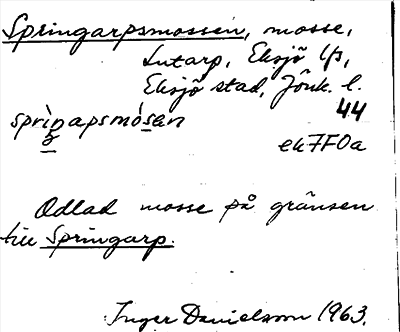 Springarpsmossen, mosse,
Lutarp, Eksjö lfs,
Eksjö stad, Jönk. l.
44
sprìŋapsmósan
ek7F0a
Odlad mosse på gränsen
till Springarp.
Inger Danielsson 1963.